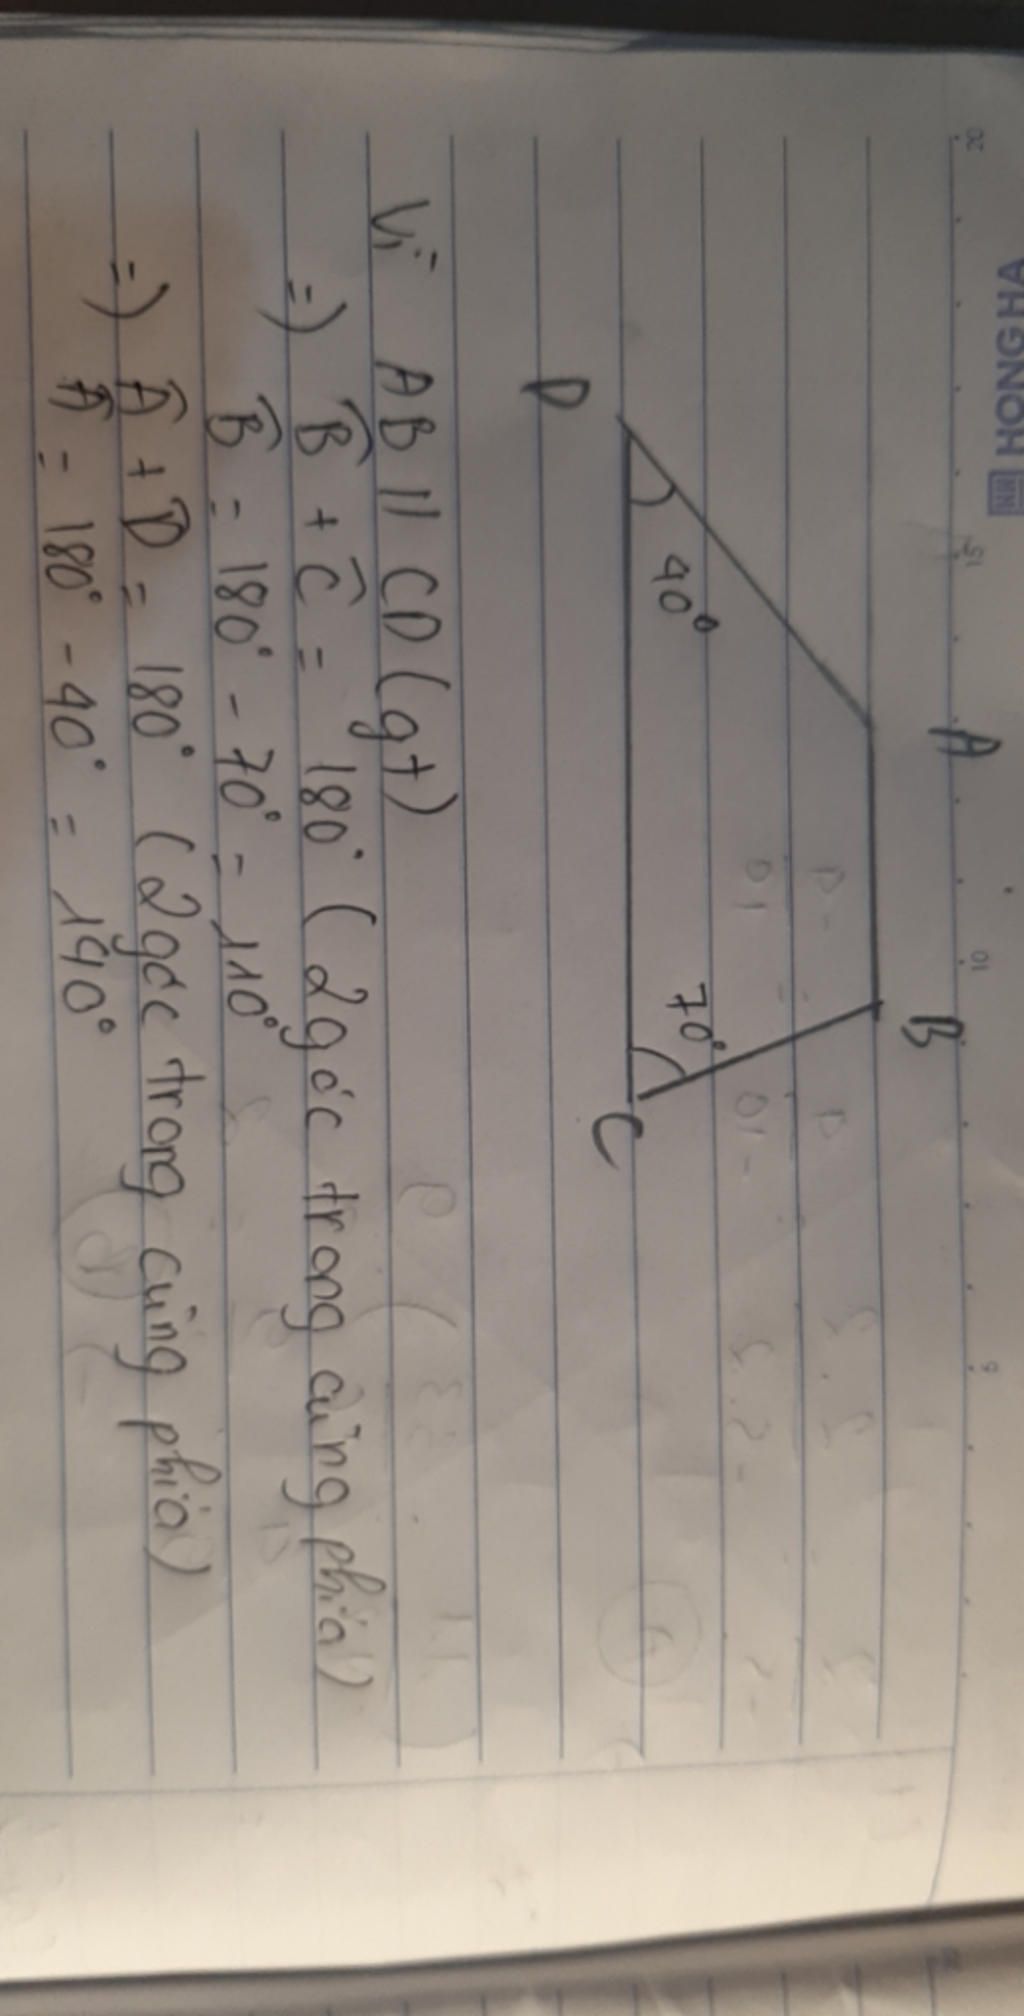 HONG HA
20
15
10
5
A
B
40°
70°
D
C
Vì AB // CD (gt)
=) B̂ + Ĉ = 180° (2 góc trong cùng phía)
B̂ = 180° - 70° = 110°
=) Â + D̂ = 180° (2 góc trong cùng phía)
Â = 180° - 40° = 140°